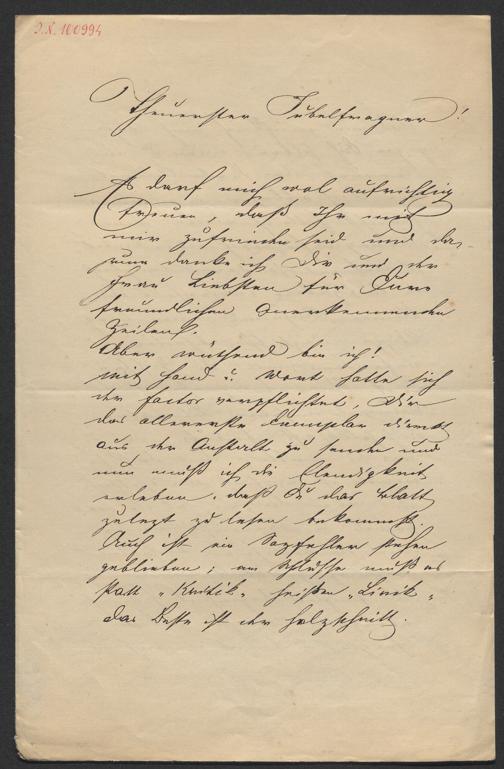 J.N. 100994
Theuerster Jubelfragner!
Es darf mich wol aufrichtig
freuen, daß Ihr mit
mir zufrieden seid und da-
rum danke ich Dir und der
Frau Liebsten für Eure
freundlichen anerkennenden
Zeilen.
Aber wüthend bin ich!
Mit Hand u. Wort hatte sich
der Factor verpflichtet, Dir
das allererste Exemplar direkt
aus der Anstalt zu senden und
nun muß ich die Elendigkeit
erleben, daß Du das Blatt
zuletzt zu lesen bekommst.
Auch ist ein Satzfehler stehen
geblieben; am Schlusse muß es
statt „Kritik“ heißen „Lirik“,
das Beste ist der Holzschnitt.